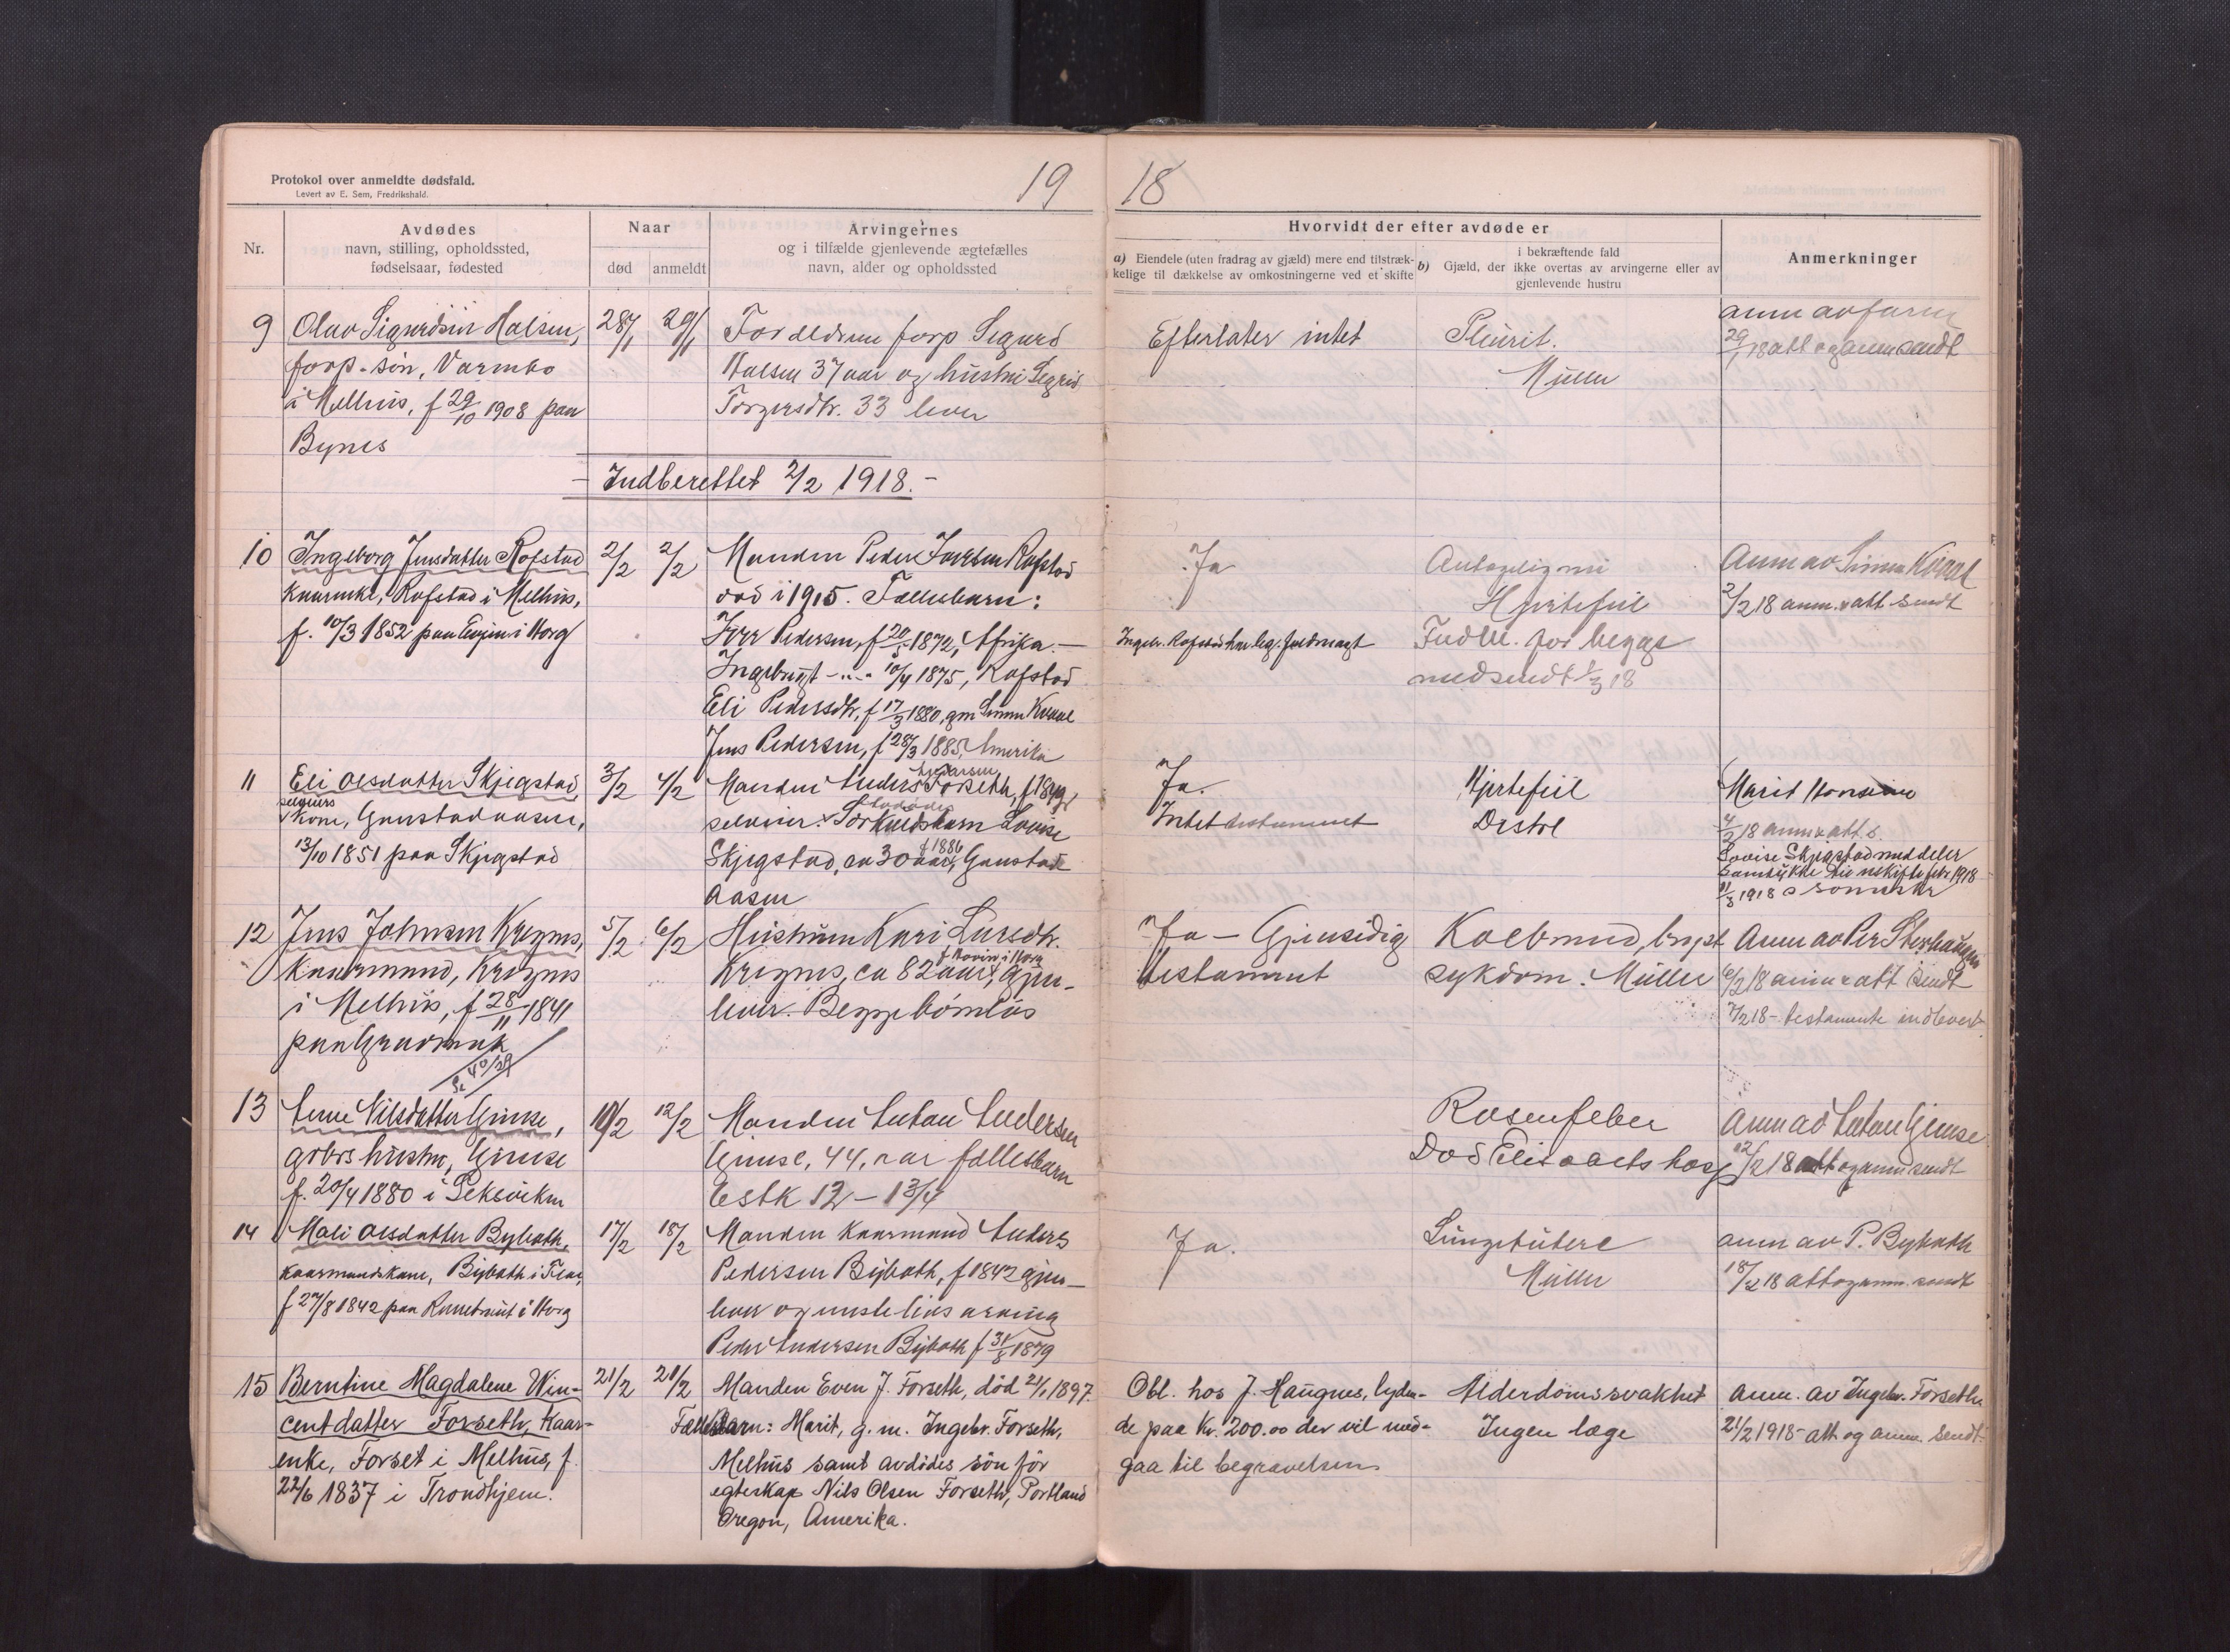 Protokol over anmeldte dødsfald.
Levert av E. Sem, Fredrikshald.
19
18
Nr.
Avdødes
navn, stilling, opholdssted,
fødselsaar, fødested
Naar
død
anmeldt
Arvingernes
og i tilfælde gjenlevende ægtefælles
navn, alder og opholdssted
Hvorvidt der efter avdøde er
a) Eiendele (uten fradrag av gjæld) mere end tilstræk-
kelige til dækkelse av omkostningerne ved et skifte
b) Gjæld, der
i bekræftende fald
ikke overtas av arvingerne eller av
gjenlevende hustru
Anmerkninger
9
Olav Sigurdsøn Halsen,
forp-søn, Varmbo
i Melhus, f 29/10 1908 paa
Bynes
28/1
29/1
Forældrene forp Sigurd
Halsen 37 aar og hustru Sigrid
Torgersdtr. 33 lever
Efterlater intet
Pleurit.
Müller
anm av faren
29/1 18 att og anm sendt
– Indberettet 2/2 1918. –
10
Ingeborg Jensdatter Rofstad
kaarenke, Rofstad i Melhus,
f. 10/3 1852 paa Evjen i Horg
2/2
2/2
Manden Peder Rofstad
død i 1915. Fællesbarn:
Pedersen, f 1872, Afrika. –
Ingebrigt 10/4 1875, Rofstad
Eli Pedersdtr, f 17/3 1880, gm Simen Kvaal
Jens Pedersen, f 28/3 1885, Amerika
Ja
Ingebr. Rofstad har leg. fuldmagt
Antagelig
Hjertefeil
for begge
nedsendt 1/3 18
Anm av Simen Kvaal
2/2 18 anm. & att sendt
11
Eli Olsdatter Skjegstad,
selveiers
kone, Gaustadaasen,
13/10 1851 paa Skjegstad
3/2
4/2
Manden Anders Forseth, f 1849,
selveier. Lovise
Skjegstad, ca 30 aar, f 1886 Gaustad
aasen
Ja.
Intet testament
Hjertefeil
Marit Hansen
4/2 18 anm & att s.
Lovise Skjegstad meddeler
1918
12
Jens Johnsen Krognes,
Kaarmand, Krognes
i Melhus, f 28/11 1841
paa
5/2
6/2
Hustruen Kari Larsdtr.
Krognes, ca 82 aar, f Hovin i Horg gjen-
lever. Begge barnløs
Ja – Gjensidig
testament
Koldbrand, bryst
sykdom. Müller
Anm av Per
6/2 18 anm & att sendt
7/2 18 – testamente indlevert
13
Nilsdatter Gimse,
grbrs hustru, Gimse
f. 20/4 1880 i Leksviken
Se 40/29
10/2
12/2
Manden Anton Andersen
Gimse, 44, aar fællesbarn
Estk 12 – 13/4
Rosenfeber
Død Elisabets hosp
Anm av Anton Gimse
12/2 18 att og anm sendt
14
Mali Olsdatter Bybroth,
kaarmandskone, i Flaa,
f 27/8 1842 paa i Horg
17/2
18/2
Manden kaarmand Anders
Pedersen Bybroth, f 1842 gjen-
lever og eneste livsarving
Peder Andersen Bybroth f 31/8 1879
Ja.
Lungetuberc
Müller
anm av P. Bybroth
18/2 18 att og anm. sendt
15
Berntine Magdalene Win-
centdatter Forseth, Kaar-
enke, Forset i Melhus, f.
22/6 1837 i Trondhjem.
21/2
21/2
Manden Even J. Forseth, død 2/1 1897.
Fællesbarn: Marit, g. m. Ingebr. Forseth,
Melhus samt avdødes søn før
egteskap Nils Olsen Forseth, Portland
Oregon, Amerika.
Obl. hos J. Haugnes, lyden-
de paa Kr. 200.00 der vil med-
gaa til begravelsen
Alderdomssvakhet
Ingen læge
anm. av Ingebr. Forseth
21/2 1918 – att og anm. sendt